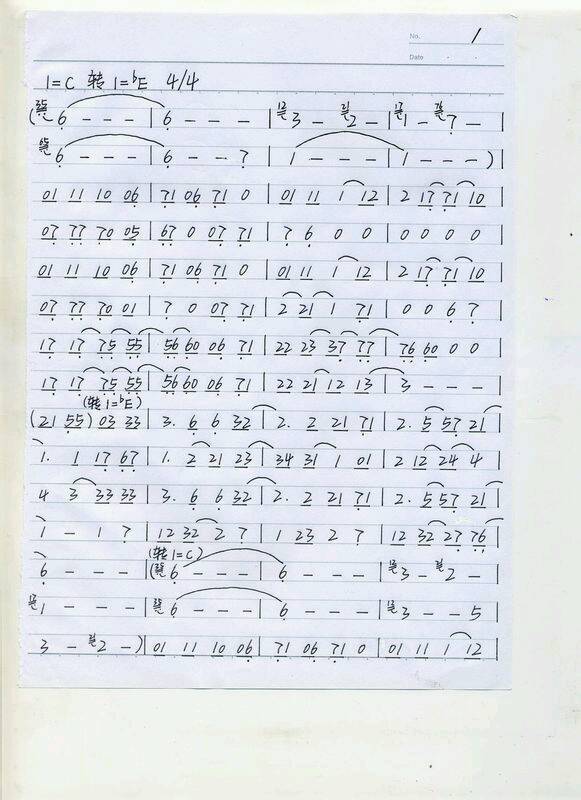 No. 1
Date
1=C 转 1=ᵇE 4/4
( 6 - - - | 6 - - - | 3 - 2 - | 1 - 7 - |
6 - - - | 6 - - 7 | 1 - - - | 1 - - - ) |
01 11 10 06 | 71 06 71 0 | 01 11 1 12 | 2 17 71 10 |
07 77 70 05 | 67 0 07 71 | 7 6 0 0 | 0 0 0 0 |
01 11 10 06 | 71 06 71 0 | 01 11 1 12 | 2 17 71 10 |
07 77 70 01 | 7 0 07 71 | 2 21 1 71 | 0 0 6 7 |
17 17 75 55 | 56 60 06 71 | 22 23 37 77 | 76 60 0 0 |
17 17 75 55 | 56 60 06 71 | 22 21 12 13 | 3 - - - |
(转1=ᵇE)
(21 55) 03 33 | 3. 6 6 32 | 2. 2 21 71 | 2. 5 57 21 |
1. 1 17 67 | 1. 2 21 23 | 34 31 1 01 | 2 12 24 4 |
4 3 33 33 | 3. 6 6 32 | 2. 2 21 71 | 2. 5 57 21 |
1 - 1 7 | 12 32 2 7 | 1 23 2 7 | 12 32 27 76 |
(转1=C)
6 - - - | ( 6 - - - | 6 - - - | 3 - 2 - |
1 - - - | 6 - - - | 6 - - - | 3 - - 5 |
3 - 2 - ) | 01 11 10 06 | 71 06 71 0 | 01 11 1 12 |